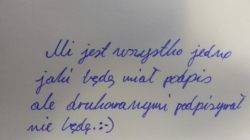 Mi jest wszystko jedno
jaki będę miał podpis
ale drukowanymi podpisywał
nie będę. :-)